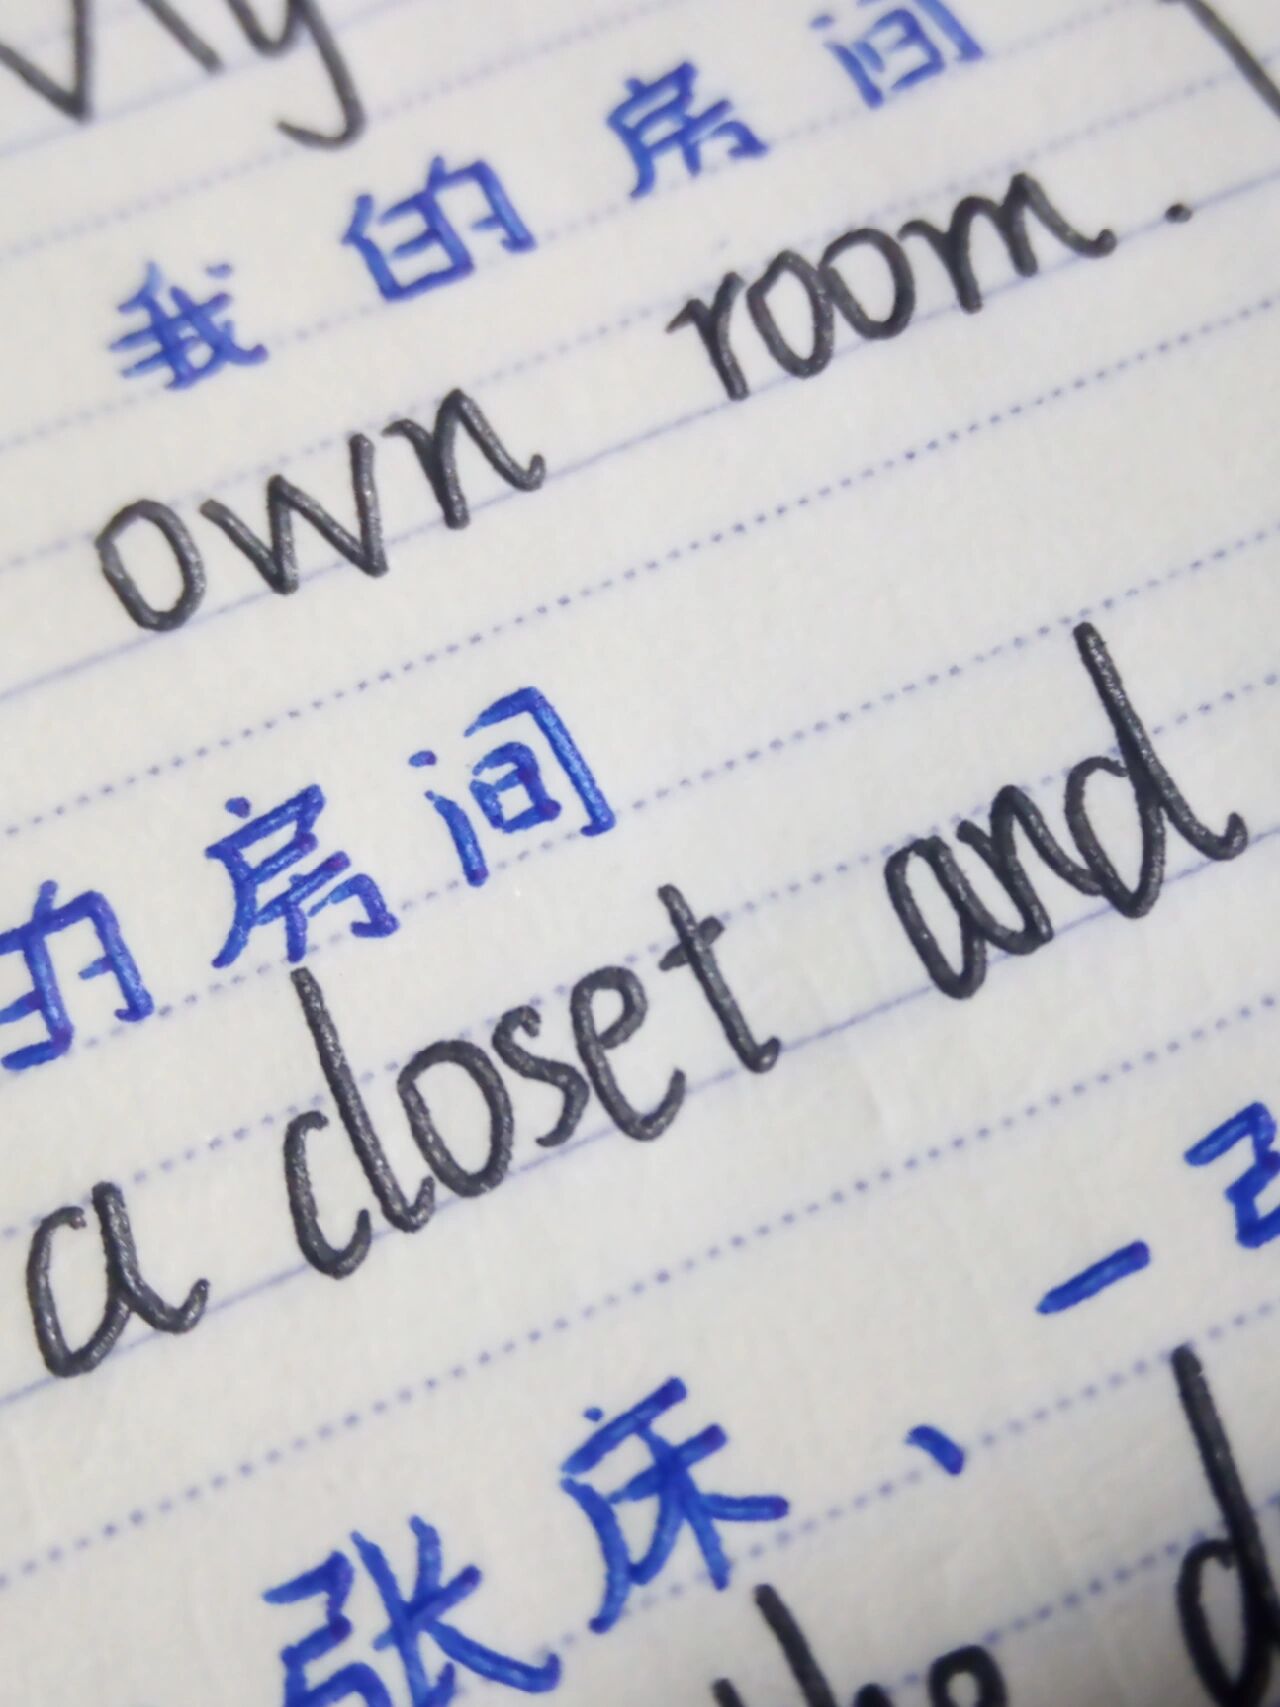 My
我的房间
own room.
的房间
a closet and
张床、一
the d